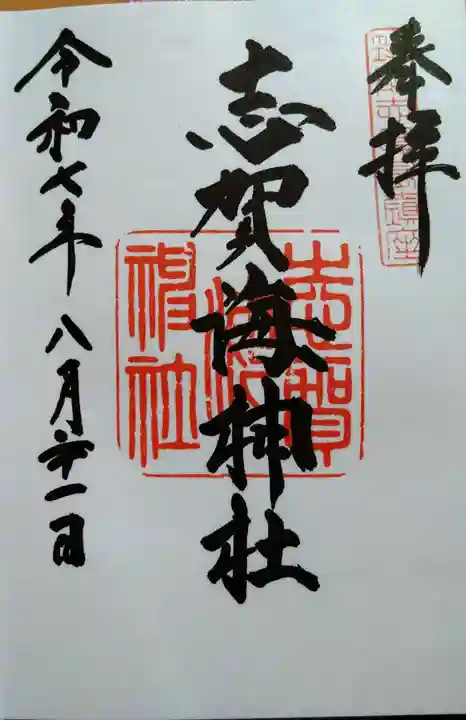 奉拝
志賀海神社
志賀
海
神社
令和七年八月二十一日